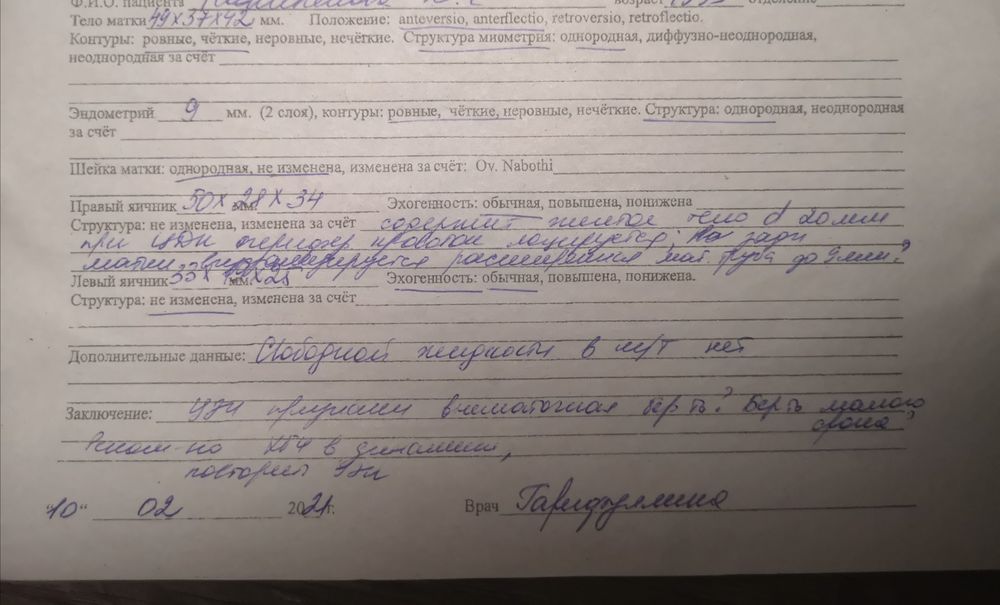 Ф.И.О. пациента возраст отделение
Тело матки 49х37х42 мм. Положение: anteversio, anterflectio, retroversio, retroflectio.
Контуры: ровные, чёткие, неровные, нечёткие. Структура миометрия: однородная, диффузно-неоднородная,
неоднородная за счёт
Эндометрий 9 мм. (2 слоя), контуры: ровные, чёткие, неровные, нечёткие. Структура: однородная, неоднородная
за счёт
Шейка матки: однородная, не изменена, изменена за счёт: Ov. Nabothi
Правый яичник 50х28х34 мм. Эхогенность: обычная, повышена, понижена
Структура: не изменена, изменена за счёт содержит желтое тело d 20 мм
при ЦДК перифер. кровоток лоцируется; За
матки расширенная мат. труба до 9 мм?
Левый яичник мм. Эхогенность: обычная, повышена, понижена.
Структура: не изменена, изменена за счёт
Дополнительные данные: Свободной жидкости в м/т нет
Заключение: УЗИ признаки внематочная бер-ть? Бер-ть малого
срока?
Реком-но ХГЧ в динамике,
повторить УЗИ
"10" 02 2021г. Врач Гарифуллина